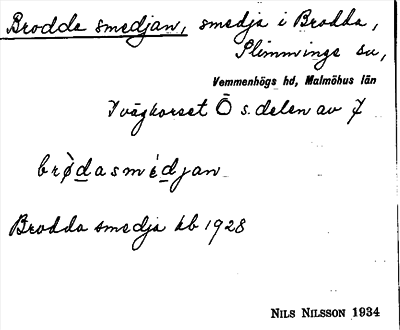 Brodda smedjan, smedja i Brodda,
Slimminge sn,
Vemmenhögs hd, Malmöhus län
I vägkorset Ö s. delen av 7
brø̀dasmédjan
Brodda smedja kb 1928
NILS NILSSON 1934